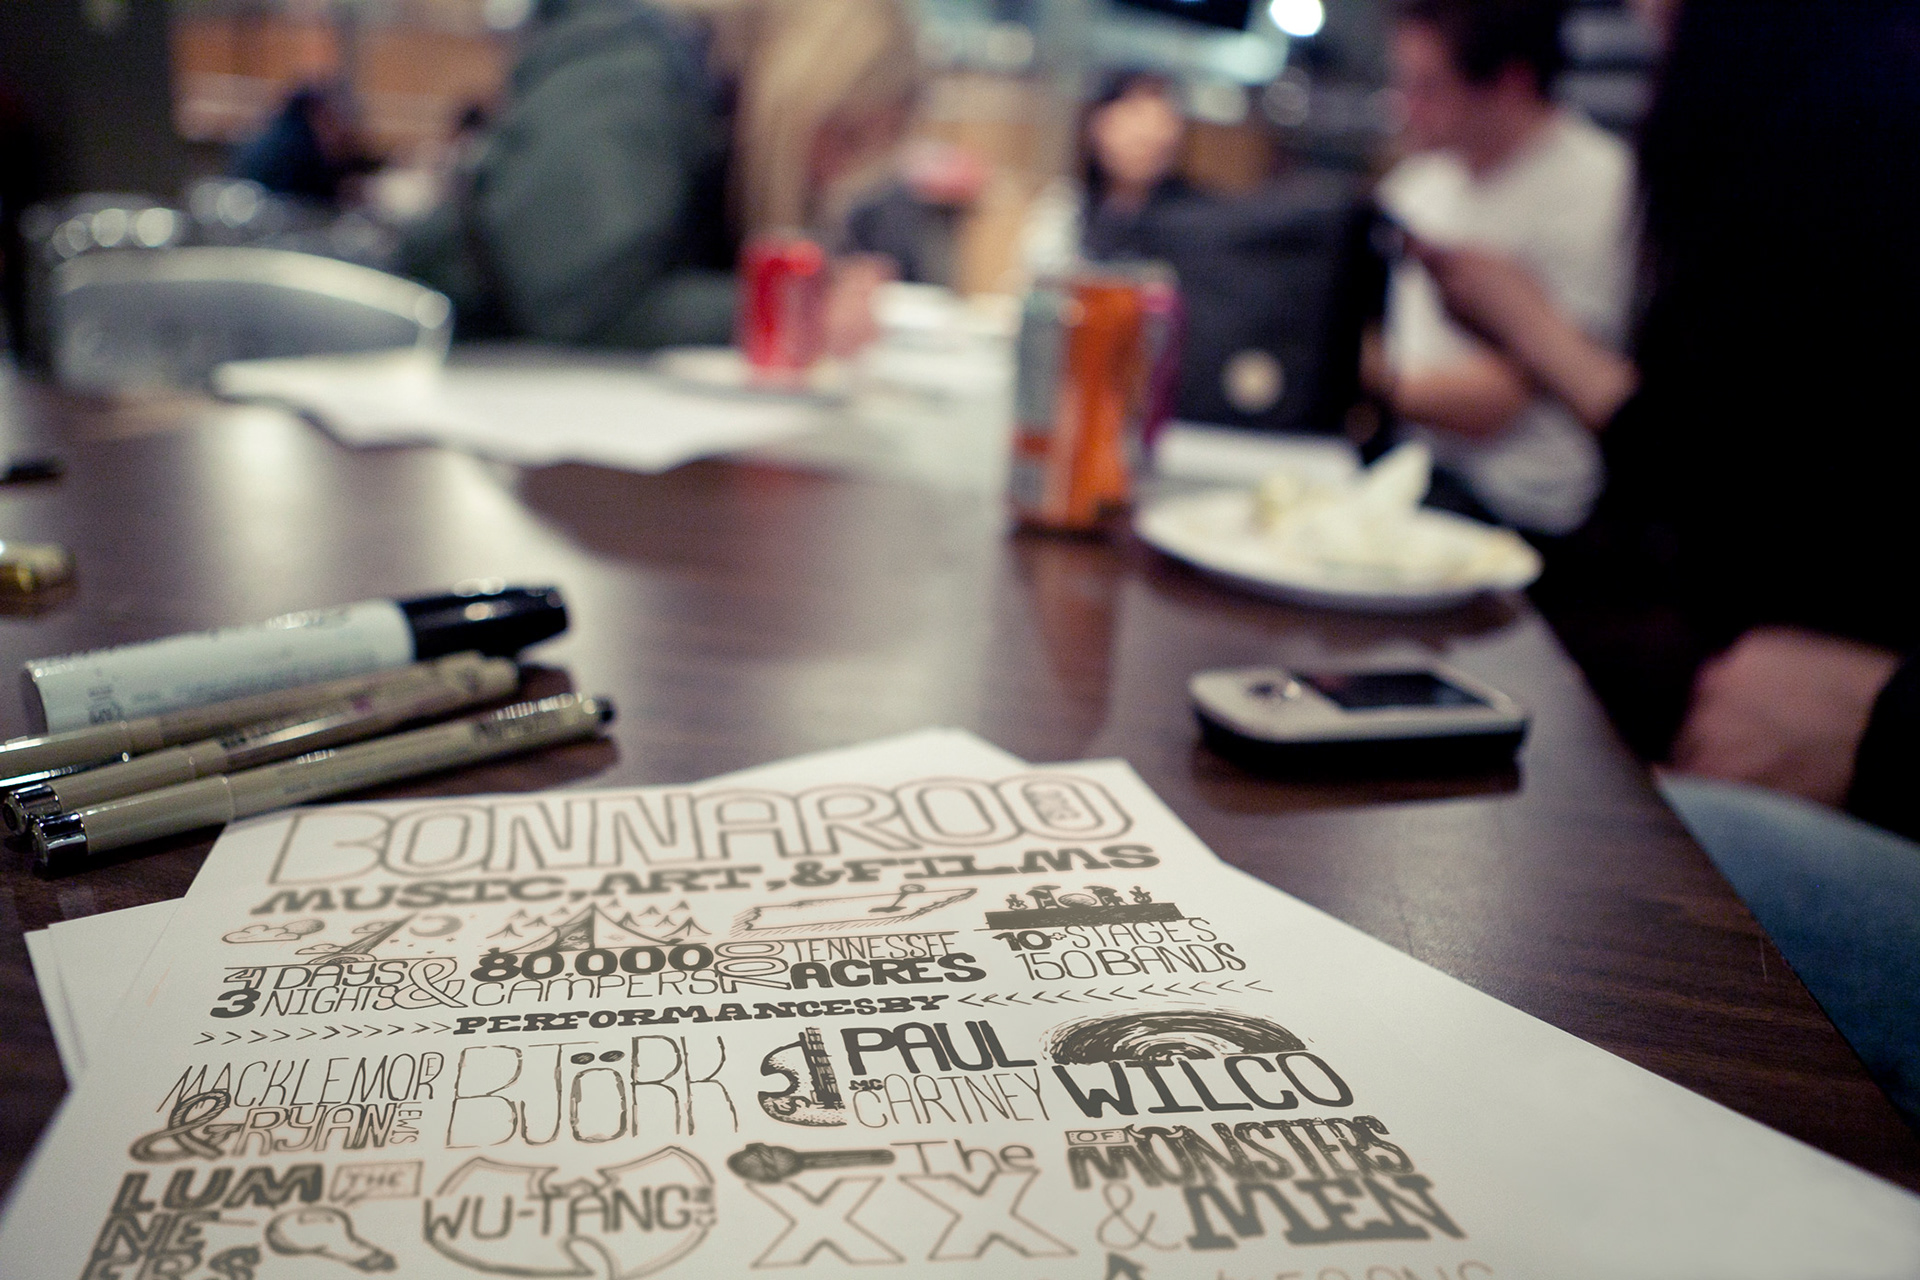 BONNAROO 2013
MUSIC, ART, & FILMS
4 DAYS & 80,000 700 TENNESSEE 10 STAGES
3 NIGHTS CAMPERS ACRES 150 BANDS
>>>>>>>>>>> PERFORMANCES BY <<<<<<<<<<<<<<
MACKLEMORE BJÖRK PAUL WILCO
& RYAN LEWIS MCCARTNEY
THE LUMINEERS WU-TANG CLAN The XX OF MONSTERS & MEN